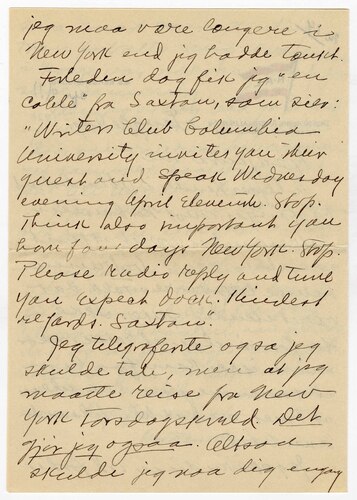 jeg maa være længere i
New York end jeg havde tænkt.
Forleden dag fik jeg "en
cable" fra Saxton, som siger:
"Writers Club Columbia
University invites you their
guest and speak Wednesday
evening April Eleventh. Stop.
Think also important you
have four days New York. Stop.
Please radio reply and time
you expect dock. Kindest
regards. Saxton".
Jeg telegraferte ogsa jeg
skulde tale, men at jeg
maatte reise fra New
York Torsdagskvæld. Det
gjør jeg ogsaa. Altsaa
skulde jeg naa dig